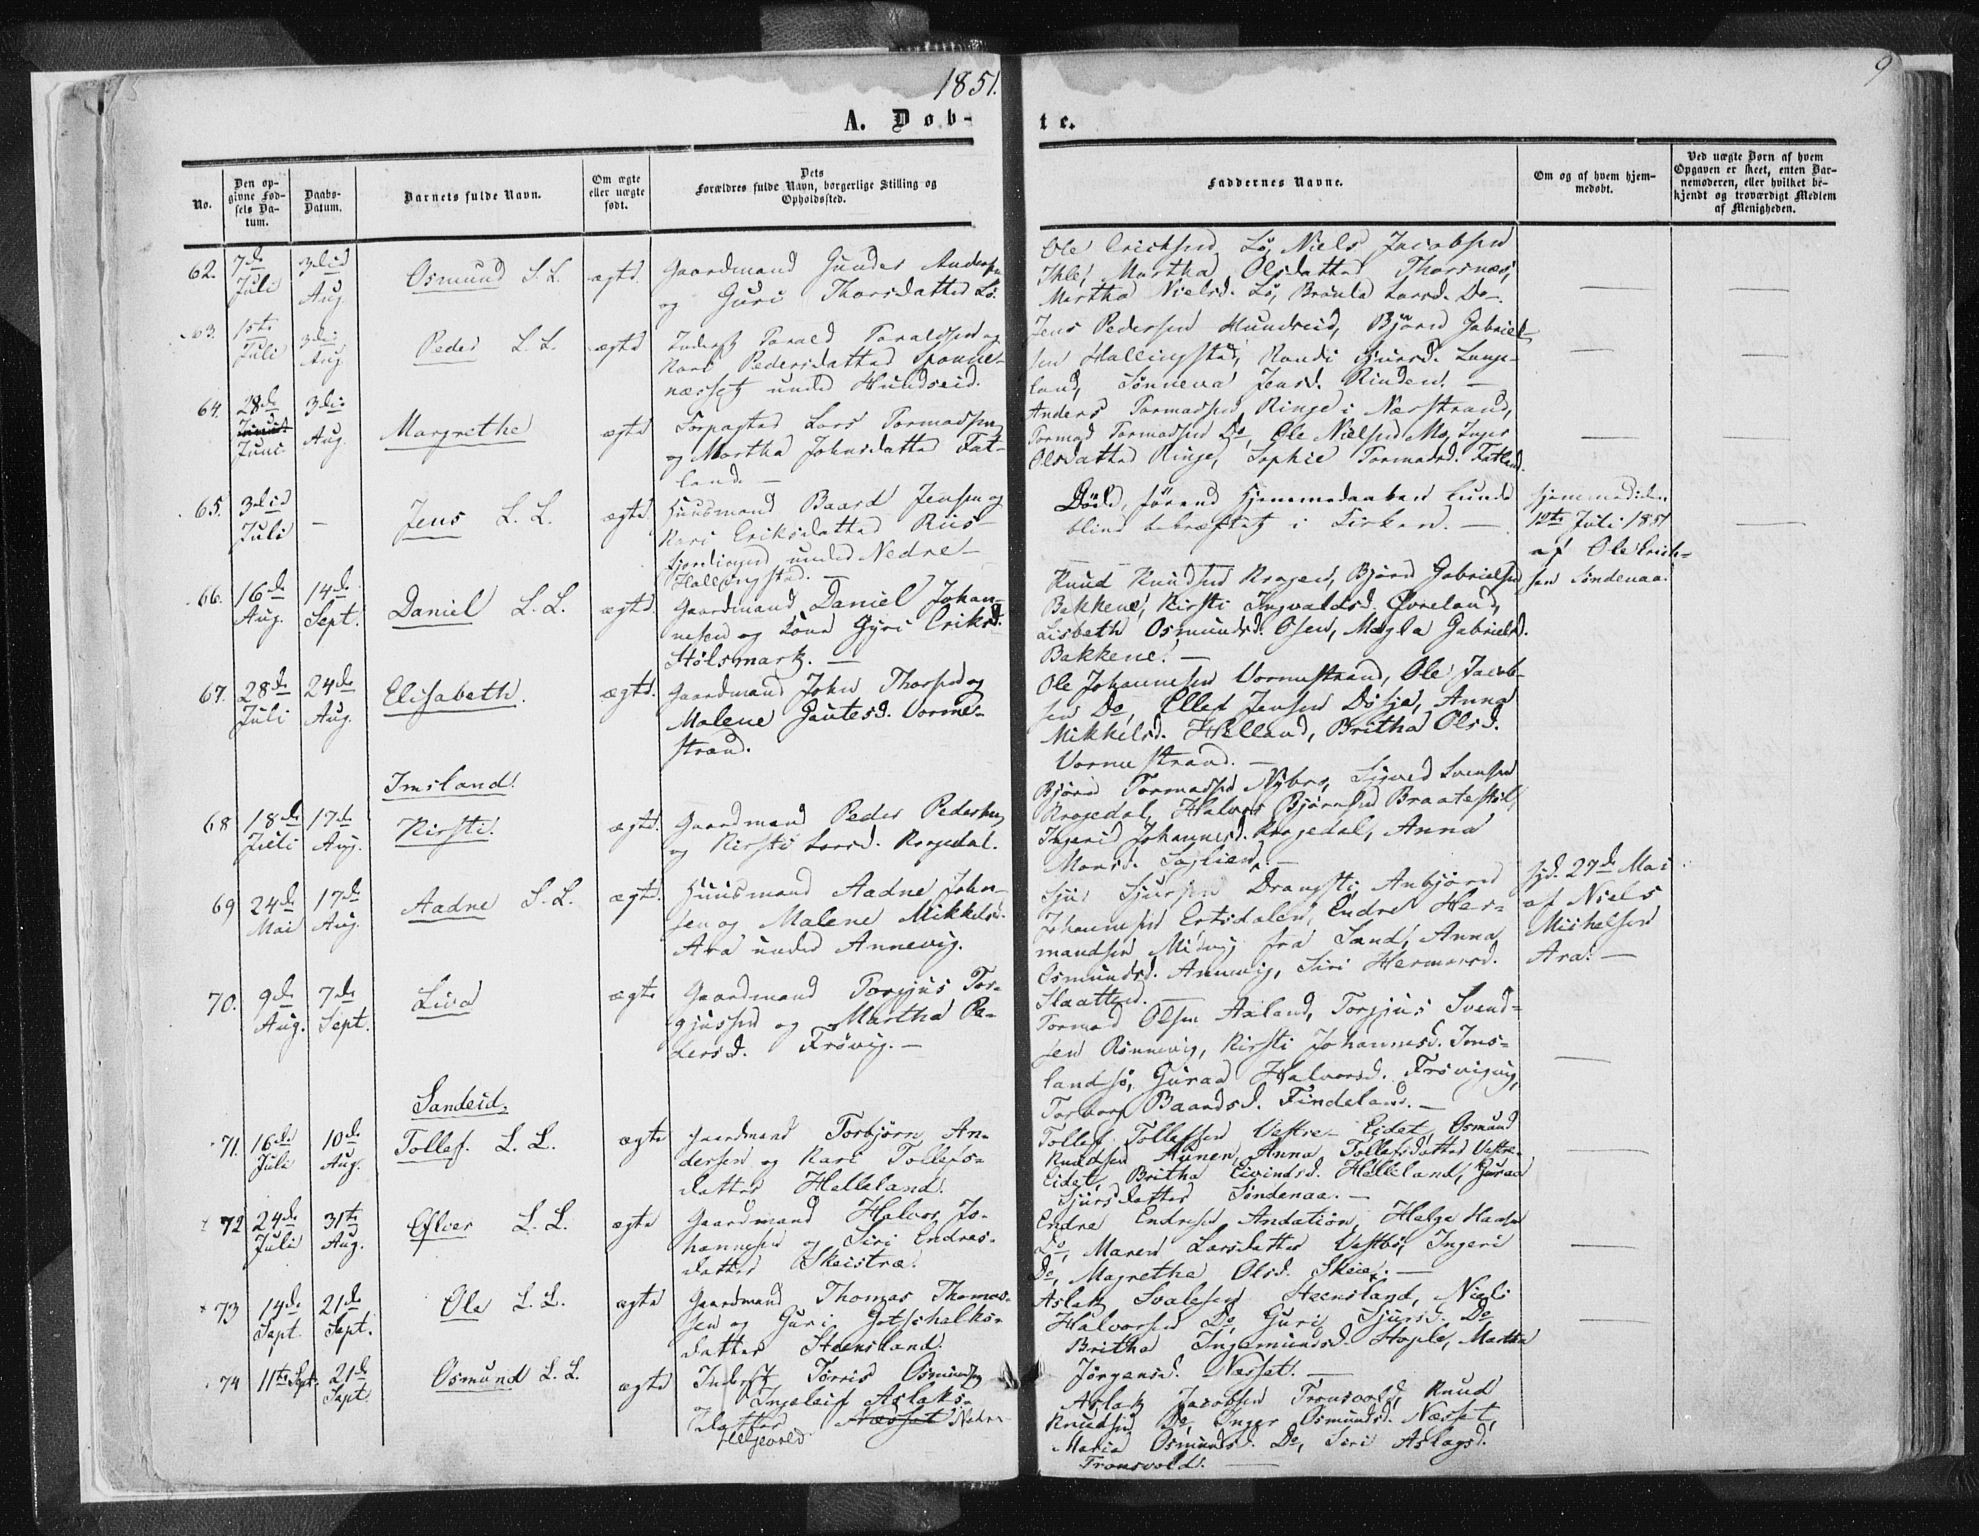 1851.
9
A. Døb-
te.
No.
Den op-
givne Fød-
sels Da-
tum.
Daabs-
Datum.
Barnets fulde Navn.
Om ægte
eller uægte
født.
Dets
Forældres fulde Navn, borgerlige Stilling og
Opholdssted.
Faddernes Navne.
Om og af hvem hjem-
medøbt.
Ved uægte Børn af hvem
Opgaven er skeet, enten Bar-
nemoderen, eller hvilket be-
kjendt og troværdigt Medlem
af Menigheden.
62. 7de 3die Osmund ægte Gaardmand Gunder Anders
Juli Aug. og Guri Thorsdatter Lø.
Ole Erichsen Lø, Niels Jacobsen
Martha Olsdatter Thorsnæs,
Martha Nielsd. Lø, Larsd. Do.
63. 15de 3die Peder L. L. ægte Inderst Torald Toraldsen og
Juli Aug. Kari Pedersdatter
næsset under Hundseid.
Jens Pedersen Hundseid, Bjørn Gabriel-
sen Hallingstad, Randi Lunge-
land, Sønneva Jensd. Rinden.
64. 28de 3die Margrethe ægte Lars Tormodsen
Juni Aug. og Martha Johnsdatter Fat-
land.
Anders Tormodsen Ringe i Nærstrand,
Tormod Tormodsen Do, Ole Nielsen Mo, Inger
Olsdatter Ringe, Sophie Tormodsd. Fatland.
65. 3die — Jens L. L. ægte Huusmand Baard Jensen og
Juli Kari Eriksdatter Riis-
under Nedre-
Hallingstad.
Død, førend Hjemmedaaben kunde
blive bekræftet i Kirken.
Hjemmedøbt den
12te Juli 1851
af Ole Erich-
sen Søndenaa.
66. 16de 14de Daniel L. L. ægte Gaardmand Daniel Johan-
Aug. Sept. nesen og Kone Gyri Eriksd.
Stølsmark.
Knud Knudsen Kragen, Bjørn Gabrielsen
Bakkene, Kirsti Ingvaldsd. Øvreland,
Lisbeth Osmundsd. Osen, Magla Gabrielsd.
Bakkene.
67. 28de 24de Elisabeth. ægte. Gaardmand John Thorsen og
Juli Aug. Malene Gautesd. Vorme-
strand.
Ole Johannesen Vormestrand, Ole Jacob-
sen Do, Ellef Jensen Døsje, Anna
Mikkelsd. Helland, Britha Olsd.
Vormestrand.
Imsland.
68 18de 17de Kirsti. ægte. Gaardmand Peder Pedersen
Juli Aug. og Kirsti Larsd. Rogedal.
Bjørn Tormodsen Nybro, Sigved Svensen
Rogedal, Halvor Bjørnsen Braatestøl,
Ingerid Johannesd. Rogedal, Anna
Monsd.
69 24de 17de Aadne ægte. Huusmand Aadne John-
Mai Aug. sen og Malene Mikkelsd.
Ara under Annevig.
Sjur Sjursen Anbjørn
Johannesen Ertsdalen, Endre Her-
mandsen fra Sand, Anna
Osmundsd. Annevig, Siri Hermansd.
Slaatten.
hjd. 27de Mai
af Niels
Michelsen
Ara.
70. 9de 7de Liva ægte Gaardmand Torgjus Tor-
Aug. Sept. gjussen og Martha Pe-
dersd. Frøvig.
Tormod Olsen Aaland, Torgjus Svend-
sen Rønnevig, Kirsti Johannesd. Ims-
landsø, Guraa Halvorsd. Frøvig,
Torborg Baardsd. Findeland.
Sandeid.
71. 16de 10de Tollef. L. L. ægte Gaardmand Torbjørn An-
Juli Aug. dersen og Kari Tollefs-
datter Helleland.
Tollef Tollefsen Vestre-Eidet, Osmund
Knudsen Aunen, Anna Tollefsdatter Vestre-
Eidet, Britha Eivindsd. Helleland, Guraa
Sjursdatter Søndenaa.
72 24de 31te L. L. ægte Gaardmand Halvor Jo-
Juli Aug. hannesen og Siri Endres-
datter Skeistræ.
Endre Endresen Helge
Do, Maren Larsdatter Vestbø, Ingeri
Do, Magrethe Olsd. Skeie.
73 14de 21de Ole L. L. ægte Gaardmand Thomas Thomas-
Sept. Sept. sen og Guri Gotschalks-
datter Steensland.
Aslak Svalesen Steensland, Niels
Halvorsen Do, Guri Sjursd. Do
Britha Ingemundsd. Hople, Martha
Jørgensd. Næsset.
74 11te Sept. 21de Osmund L. L. ægte Inderst Tørris Osmundsen
Sept. og Ingeleif Aslaks-
datter Næsset Nedre-
Helgevold.
Aslak Jacobsen Tronsvold, Knud
Knudsen Do, Inger Osmundsd. Næsset,
Maria Osmundsd. Do, Siri Aslagsd.
Tronsvold.